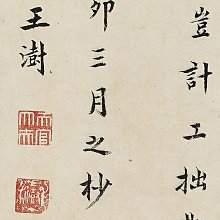 豈計工拙
卯三月之杪
王澍